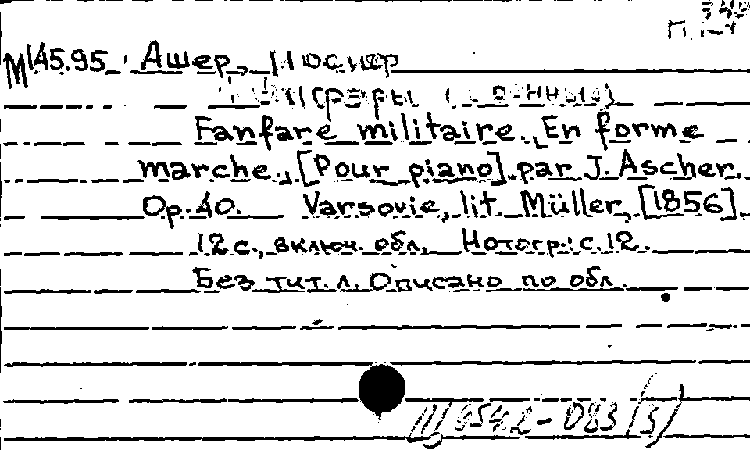 М145.95 Ашер,
Fanfare militaire. En forme
marche. [Pour piano] par J. Ascher.
Op. 40. Varsovie, lit. Müller, [1856].
12 с., включ. обл. Нотогр.: с. 12.
Без тит. л. Описано по обл.